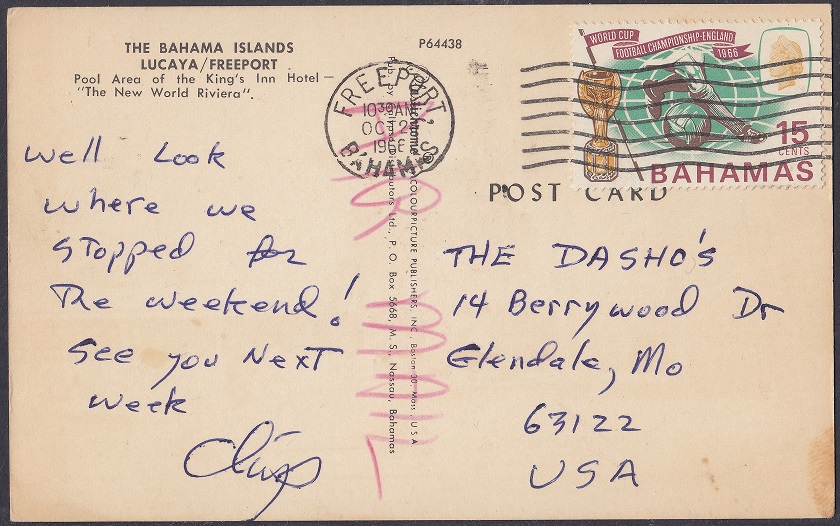 THE BAHAMA ISLANDS
LUCAYA/FREEPORT
Pool Area of the King's Inn Hotel —
"The New World Riviera".
P64438
FREEPORT,
10 30 AM
OCT 2
196
BAHAMAS
WORLD CUP
FOOTBALL CHAMPIONSHIP-ENGLAND
1966
15
CENTS
BAHAMAS
POST CARD
Well Look
where we
stopped for
The weekend!
see you Next
week
COLOURPICTURE PUBLISHERS, INC., Boston 30, Mass., U S A
Ltd., P. O. Box 5668, M. S., Nassau, Bahamas
AIR MAIL
THE DASHO'S
14 Berrywood Dr
Glendale, Mo
63122
USA